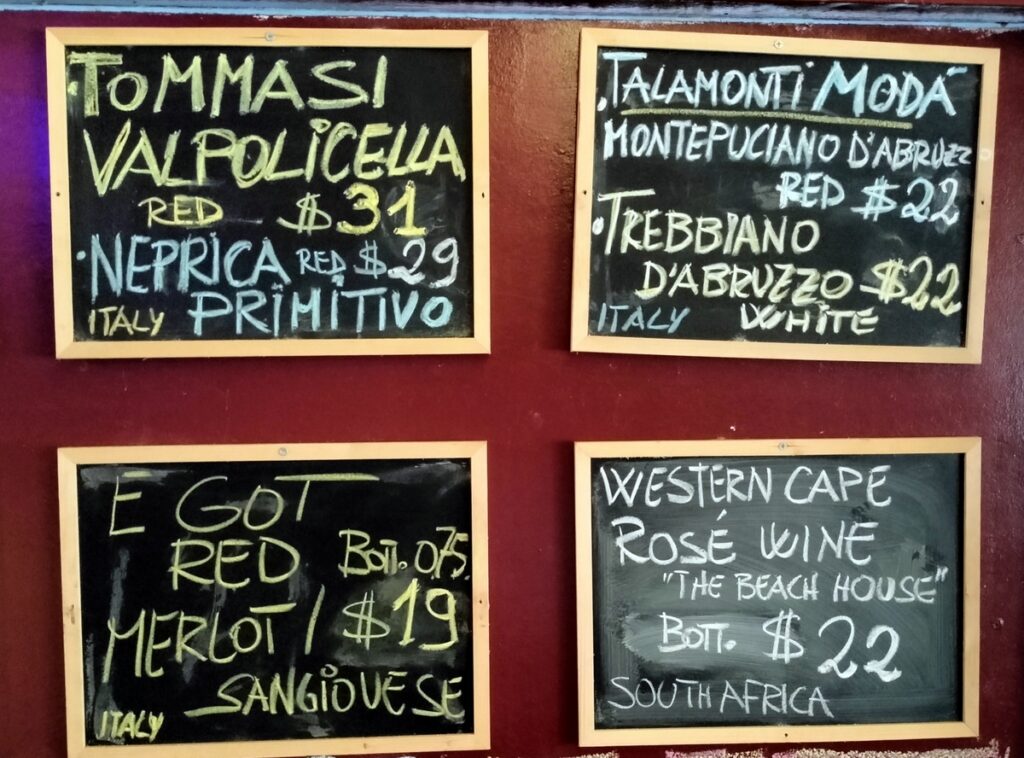 TOMMASI
VALPOLICELLA
RED $31
·NEPRICA RED $29
ITALY PRIMITIVO
·TALAMONTI MODÁ
MONTEPUCIANO D'ABRUZZ
RED $22
·TREBBIANO
D'ABRUZZO $22
ITALY WHITE
E GOT
RED BOTT. 0,75
MERLOT / $19
SANGIOVESE
ITALY
WESTERN CAPE
ROSÉ WINE
"THE BEACH HOUSE"
BOTT. $22
SOUTH AFRICA